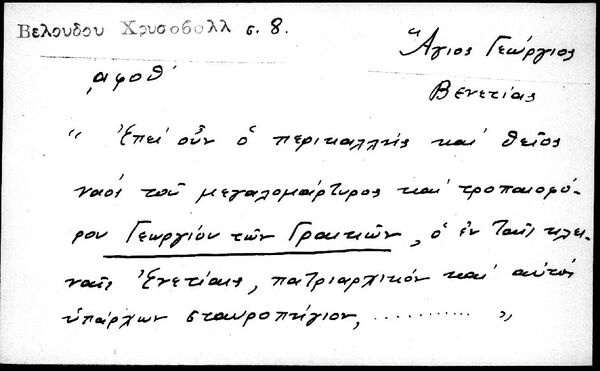 Βελουδου Χρυσοβολλ σ. 8.
Ἅγιος Γεώργιος
Βενετίας
͵αφοθ´
“ Ἐπεὶ οὖν ὁ περικαλλὴς καὶ θεῖος
ναὸς τοῦ μεγαλομάρτυρος καὶ τροπαιοφό-
ρου Γεωργίου τῶν Γραικῶν, ὁ ἐν ταῖς κλει-
ναῖς Ἐνετίαις, πατριαρχικὸν καὶ αὐτὸς
ὑπάρχων σταυροπήγιον, ........... „